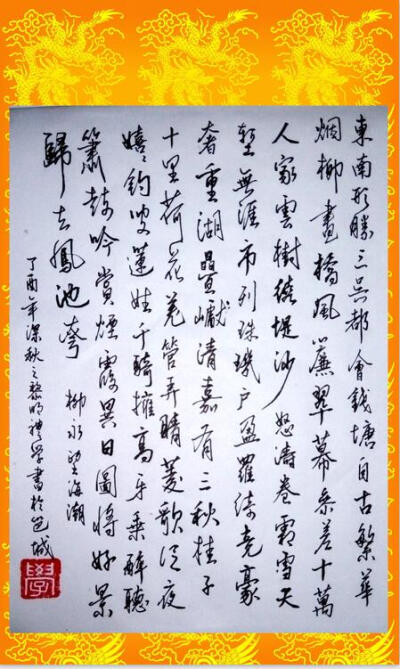 東南形勝三吳都會錢塘自古繁華
烟柳畫橋風簾翠幕參差十萬
人家雲樹繞堤沙怒濤卷霜雪天
塹無涯市列珠璣戶盈羅綺竞豪
奢重湖疊巘清嘉有三秋桂子
十里荷花羌管弄晴菱歌泛夜
嬉々釣叟蓮娃千騎擁高牙乘醉聽
簫鼓吟賞煙霞異日圖將好景
歸去鳳池夸 柳永望海潮
丁酉年深秋之黎明禮學書於邑城
學